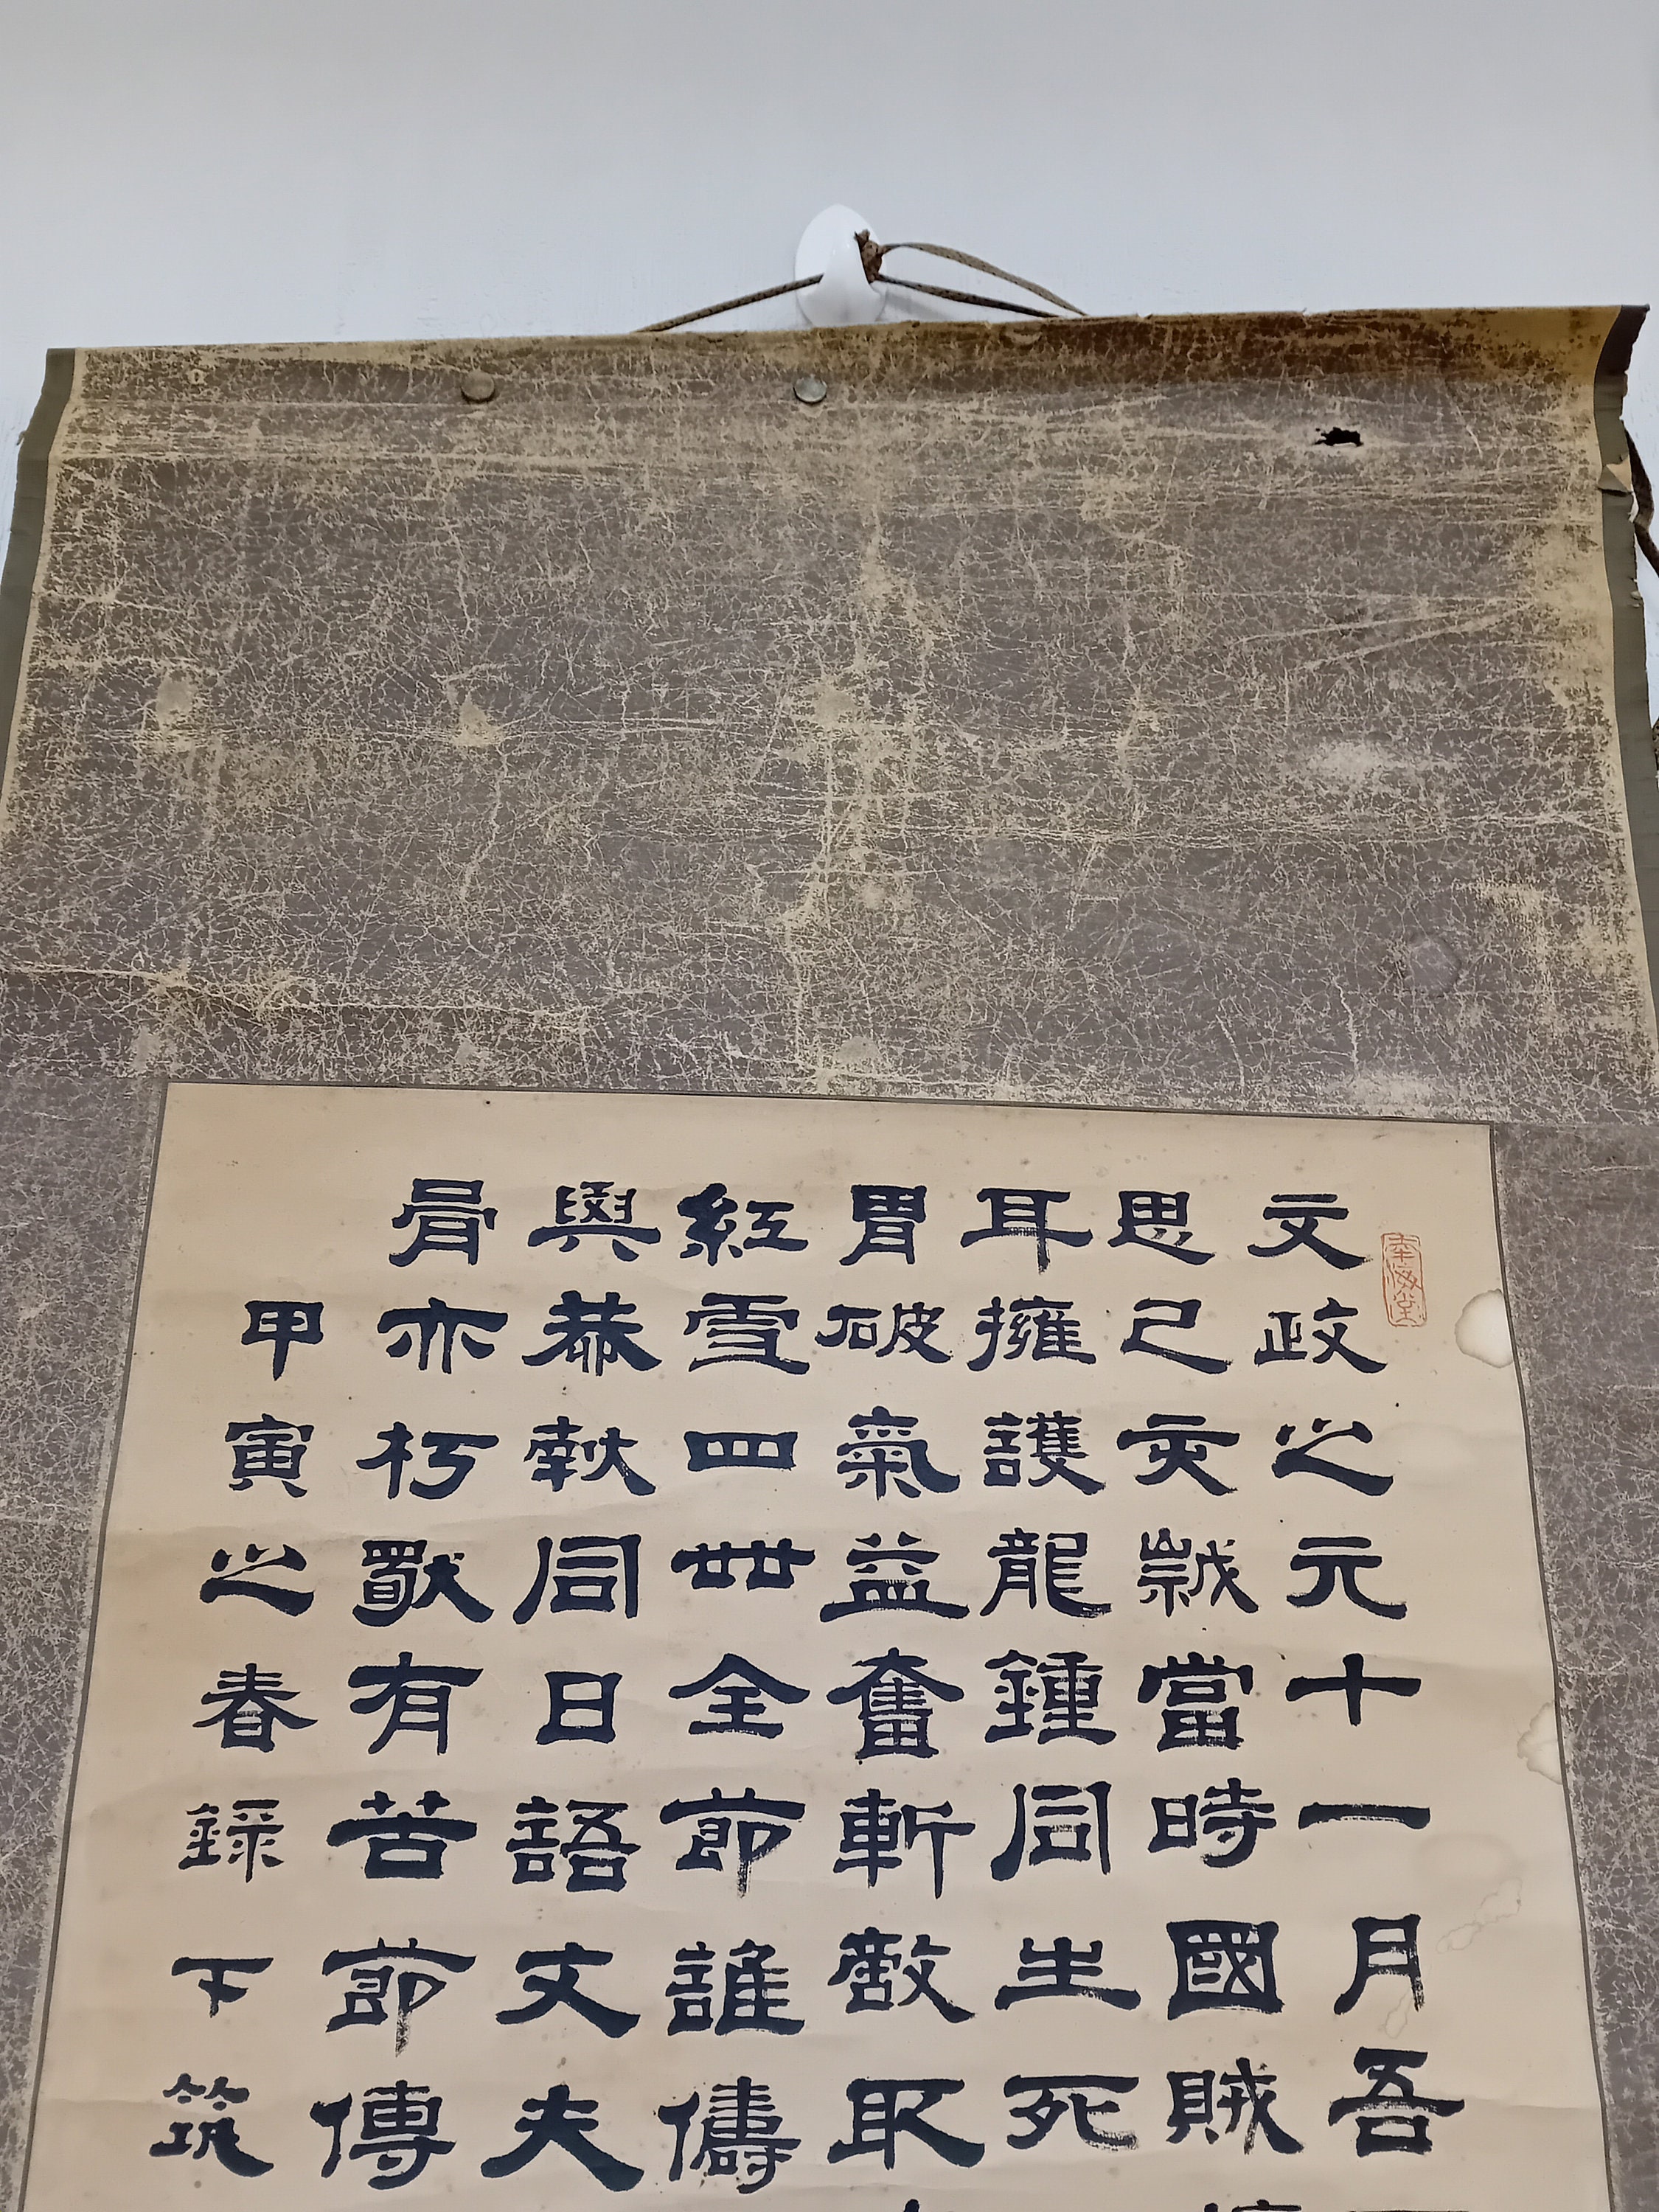 文政之元十一月吾
思己亥歳當時國賊
耳擁護龍鍾同生死
冑破氣益奮斬敵取
紅雪四世全節誰儔
與恭献同日語丈夫
骨亦朽獨有苦節傳
甲寅之春録下筑